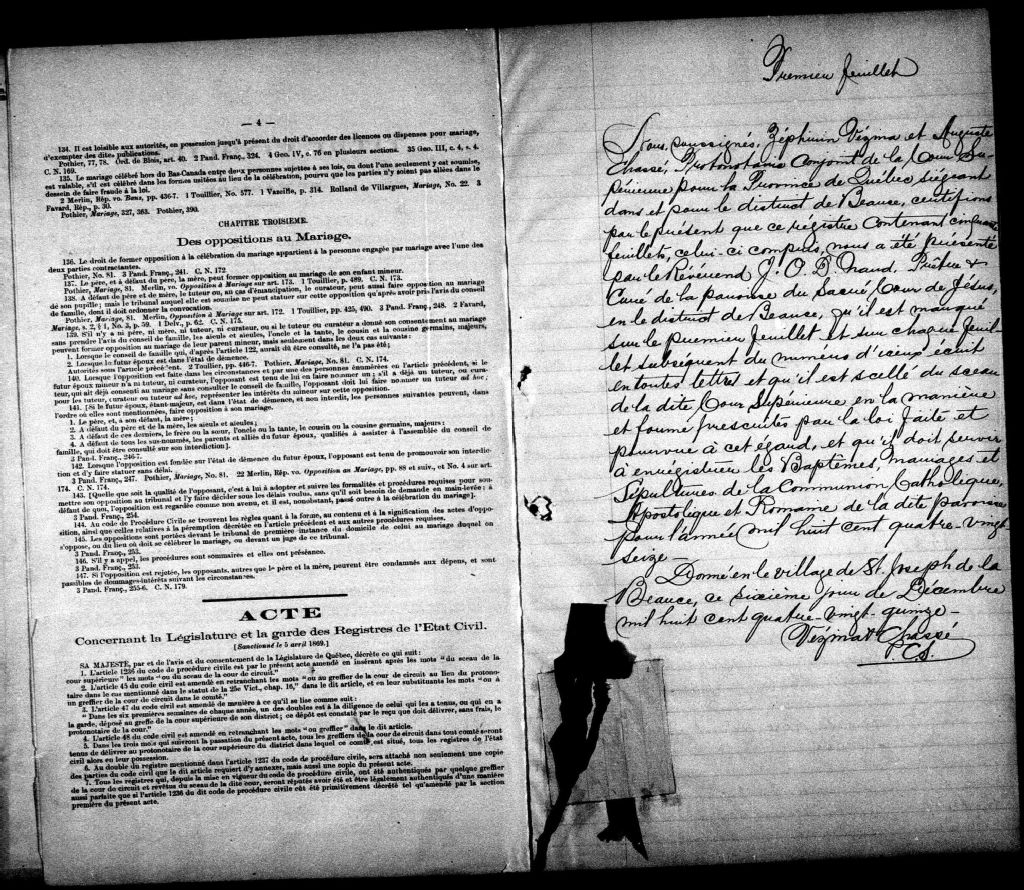 — 4 —
134. Il est loisible aux autorités, en possession jusqu'à présent du droit d'accorder des licences ou dispenses pour mariage,
d'exempter des dites publications.
Pothier, 77, 78. Ord. de Blois, art. 40. 2 Pand. Franç., 324. 4 Geo. IV, c. 76 en plusieurs sections. 35 Geo. III, c. 4, s. 4.
C. N. 169.
135. Le mariage célébré hors du Bas-Canada entre deux personnes sujettes à ses lois, ou dont l'une seulement y est soumise,
est valable, s'il est célébré dans les formes usitées au lieu de la célébration, pourvu que les parties n'y soient pas allées dans le
dessein de faire fraude à la loi.
2 Merlin, Rép. vo. Bans, pp. 436-7. 1 Touillier, No. 577. 1 Vazeille, p. 314. Rolland de Villargues, Mariage, No. 22. 3
Favard, Rép., p. 30.
Pothier, Mariage, 327, 363. Pothier, 390.
CHAPITRE TROISIEME.
Des oppositions au Mariage.
136. Le droit de former opposition à la célébration du mariage appartient à la personne engagée par mariage avec l'une des
deux parties contractantes.
Pothier, No. 81. 3 Pand. Franç., 241. C. N. 172.
137. Le père, et à défaut du père, la mère, peut former opposition au mariage de son enfant mineur.
Pothier, Mariage, 81. Merlin, vo. Opposition à Mariage sur art. 173. 1 Touillier, p. 489. C. N. 173.
138. A défaut de père et de mère, le tuteur ou, au cas d'émancipation, le curateur, peut aussi faire opposition au mariage
de son pupille; mais le tribunal auquel elle est soumise ne peut statuer sur cette opposition qu'après avoir pris l'avis du conseil
de famille, dont il doit ordonner la convocation.
Pothier, Mariage, 81. Merlin, Opposition à Mariage sur art. 172. 1 Touillier, pp. 425, 490. 3 Pand. Franç., 248. 2 Favard,
Mariage, s. 2, § 1, No. 3, p. 59. 1 Delv., p. 62. C. N. 175.
139. S'il n'y a ni père, ni mère, ni tuteur, ni curateur, ou si le tuteur ou curateur a donné son consentement au mariage
sans prendre l'avis du conseil de famille, les aïeuls et aïeules, l'oncle et la tante, le cousin et la cousine germains, majeurs,
peuvent former opposition au mariage de leur parent mineur, mais seulement dans les deux cas suivants:
1. Lorsque le conseil de famille qui, d'après l'article 122, aurait dû être consulté, ne l'a pas été;
2. Lorsque le futur époux est dans l'état de démence.
Autorités sous l'article précédent. 2 Touillier, pp. 446-7. Pothier, Mariage, No. 81. C. N. 174.
140. Lorsque l'opposition est faite dans les circonstances et par une des personnes énumérées en l'article précédent, si le
futur époux mineur n'a ni tuteur, ni curateur, l'opposant est tenu de lui en faire nommer un; s'il a déjà un tuteur, ou cura-
teur, qui ait déjà consenti au mariage sans consulter le conseil de famille, l'opposant doit lui faire nommer un tuteur ad hoc;
pour les tuteur, curateur ou tuteur ad hoc, représenter les intérêts du mineur sur cette opposition.
141. [Si le futur époux, étant majeur, est dans l'état de démence, et non interdit, les personnes suivantes peuvent, dans
l'ordre où elles sont mentionnées, faire opposition à son mariage.
1. Le père, et, à son défaut, la mère;
2. A défaut du père et de la mère, les aïeuls et aïeules;
3. A défaut de ces derniers, le frère ou la sœur, l'oncle ou la tante, le cousin ou la cousine germains, majeurs;
4. A défaut de tous les sus-nommés, les parents et alliés du futur époux, qualifiés à assister à l'assemblée du conseil de
famille, qui doit être consulté sur son interdiction]
3 Pand. Franç., 246-7.
142. Lorsque l'opposition est fondée sur l'état de démence du futur époux, l'opposant est tenu de promouvoir son interdic-
tion et d'y faire statuer sans délai.
3 Pand. Franç., 247. Pothier, Mariage, No. 81. 22 Merlin, Rép. vo. Opposition au Mariage, pp. 88 et suiv., et No. 4 sur art.
174. C. N. 174.
143. [Quelle que soit la qualité de l'opposant, c'est à lui à adopter et suivre les formalités et procédures requises pour sou-
mettre son opposition au tribunal et l'y faire décider sous les délais voulus, sans qu'il soit besoin de demande en main-levée: à
défaut de quoi, l'opposition est regardée comme non avenu, et il est, nonobstant, passé outre à la célébration du mariage].
3 Pand. Franç., 254.
144. Au code de Procédure Civile se trouvent les règles quant à la forme, au contenu et à la signification des actes d'oppo-
sition, ainsi que celles relatives à la péremption décrétée en l'article précédent et aux autres procédures requises.
145. Les oppositions sont portées devant le tribunal de première instance du domicile de celui au mariage duquel on
s'oppose, ou du lieu où doit se célébrer le mariage, ou devant un juge de ce tribunal.
3 Pand. Franç., 253.
146. S'il y a appel, les procédures sont sommaires et elles ont préséance.
3 Pand. Franç., 253.
147. Si l'opposition est rejetée, les opposants, autres que le père et la mère, peuvent être condamnés aux dépens, et sont
passibles de dommages-intérêts suivant les circonstances.
3 Pand. Franç., 255-6. C. N. 179.
ACTE
Concernant la Législature et la garde des Registres de l'Etat Civil.
[Sanctionné le 5 avril 1869.]
SA MAJESTE, par et de l'avis et du consentement de la Législature de Québec, décrète ce qui suit:
1. L'article 1236 du code de procédure civile est par le présent acte amendé en insérant après les mots "du sceau de la
cour supérieure" les mots "ou du sceau de la cour de circuit."
2. L'article 45 du code civil est amendé en retranchant les mots "ou au greffier de la cour de circuit au lieu du protono-
taire dans le cas mentionné dans le statut de la 25e Vict., chap. 16," dans le dit article, et en leur substituants les mots "ou à
un greffier de la cour de circuit dans le comté."
3. L'article 47 du code civil est amendé de manière à ce qu'il se lise comme suit:
"Dans les six premières semaines de chaque année, un des doubles est à la diligence de celui qui les a tenus, ou qui en a
la garde, déposé au greffe de la cour supérieure de son district; ce dépôt est constaté par le reçu que doit délivrer, sans frais, le
protonotaire de la cour."
4. L'article 48 du code civil est amendé en retranchant les mots "on greffier" dans le dit article.
5. Dans les trois mois qui suivront la passation du présent acte, tous les greffiers de la cour de circuit dans tout comté seront
tenus de délivrer au protonotaire de la cour supérieure du district dans lequel ce comté est situé, tous les registres de l'état
civil alors en leur possession.
6. Au double du registre mentionné dans l'article 1237 du code de procédure civile, sera attaché non seulement une copie
des parties du code civil que le dit article requiert d'y annexer, mais aussi une copie du présent acte.
7. Tous les registres qui, depuis la mise en vigueur du code de procédure civile, ont été authentiqués par quelque greffier
de la cour de circuit et revêtus du sceau de la dite cour, seront réputés avoir été et être légalement authentiqués d'une manière
aussi parfaite que si l'article 1236 du dit code de procédure civile eût été primitivement décrété tel qu'amendé par la section
première du présent acte.
Premier feuillet
Nous, soussignés, Zéphirin Vézina et Auguste
Chassé, Protonotaire Conjoint de la Cour Su-
périeure pour la Province de Québec siégeant
dans et pour le district de Beauce, certifions
par le présent que ce régistre contenant cinquante
feuillets, celui-ci compris, nous a été présenté
par le Révérend J. O. D. Naud, Prêtre &
Curé de la paroisse du Sacré Cœur de Jésus,
en le district de Beauce, qu'il est marqué
sur le premier feuillet et sur chaque feuil-
let subséquent du numéro d'iceux écrit
en toutes lettres et qu'il est scellé du sceau
de la dite Cour Supérieure en la manière
et forme prescrites par la loi faite et
pourvue à cet égard, et qu'il doit servir
à enregistrer les Baptêmes, mariages et
Sépultures de la Communion Catholique,
Apostolique et Romaine de la dite paroisse
pour l'année mil huit cent quatre-vingt
seize—
Donné en le village de St. Joseph de la
Beauce, ce sixième jour de Décembre
mil huit cent quatre-vingt-quinze—
Vézina & Chassé
P.C.S.